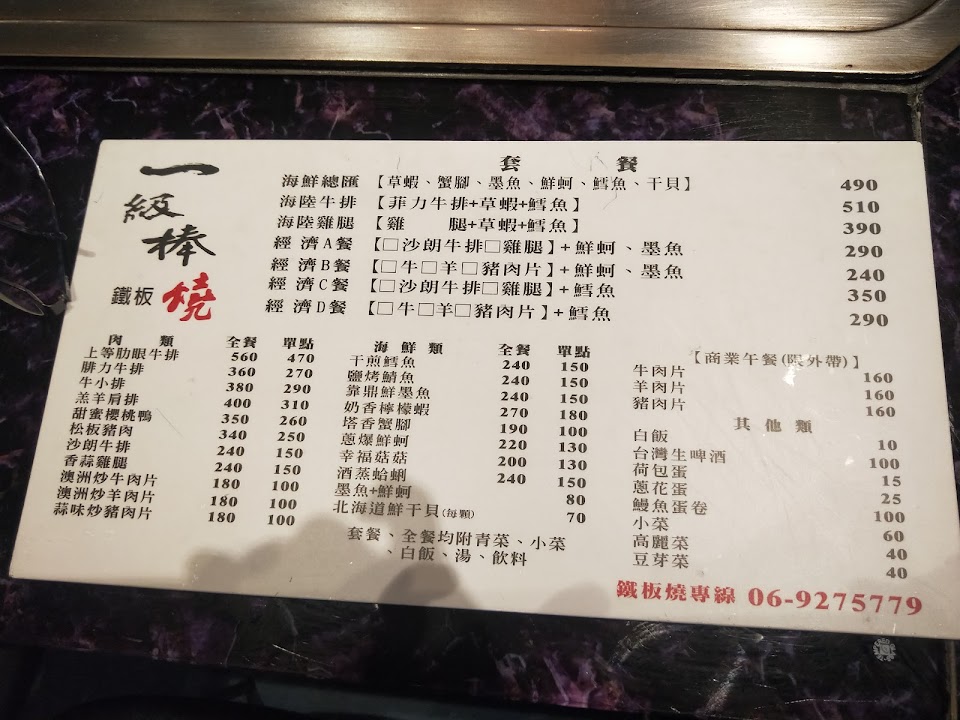 一級棒
鐵板燒
套 餐
海鮮總匯【草蝦、蟹腳、墨魚、鮮蚵、鱈魚、干貝】 490
海陸牛排【菲力牛排+草蝦+鱈魚】 510
海陸雞腿【雞 腿+草蝦+鱈魚】 390
經濟A餐【□沙朗牛排□雞腿】+鮮蚵、墨魚 290
經濟B餐【□牛□羊□豬肉片】+鮮蚵、墨魚 240
經濟C餐【□沙朗牛排□雞腿】+鱈魚 350
經濟D餐【□牛□羊□豬肉片】+鱈魚 290
肉 類 全餐 單點
上等肋眼牛排 560 470
腓力牛排 360 270
牛小排 380 290
羔羊肩排 400 310
甜蜜櫻桃鴨 350 260
松板豬肉 340 250
沙朗牛排 240 150
香蒜雞腿 240 150
澳洲炒牛肉片 180 100
澳洲炒羊肉片 180 100
蒜味炒豬肉片 180 100
海鮮類 全餐 單點
干煎鱈魚 240 150
鹽烤鯖魚 240 150
靠鼎鮮墨魚 240 150
奶香檸檬蝦 270 180
塔香蟹腳 190 100
蔥爆鮮蚵 220 130
幸福菇菇 200 130
酒蒸蛤蜊 240 150
墨魚+鮮蚵 80
北海道鮮干貝(每顆) 70
套餐、全餐均附青菜、小菜
、白飯、湯、飲料
【商業午餐(限外帶)】
牛肉片 160
羊肉片 160
豬肉片 160
其他類
白飯 10
台灣生啤酒 100
荷包蛋 15
蔥花蛋 25
鰻魚蛋卷 100
小菜 60
高麗菜 40
豆芽菜 40
鐵板燒專線 06-9275779